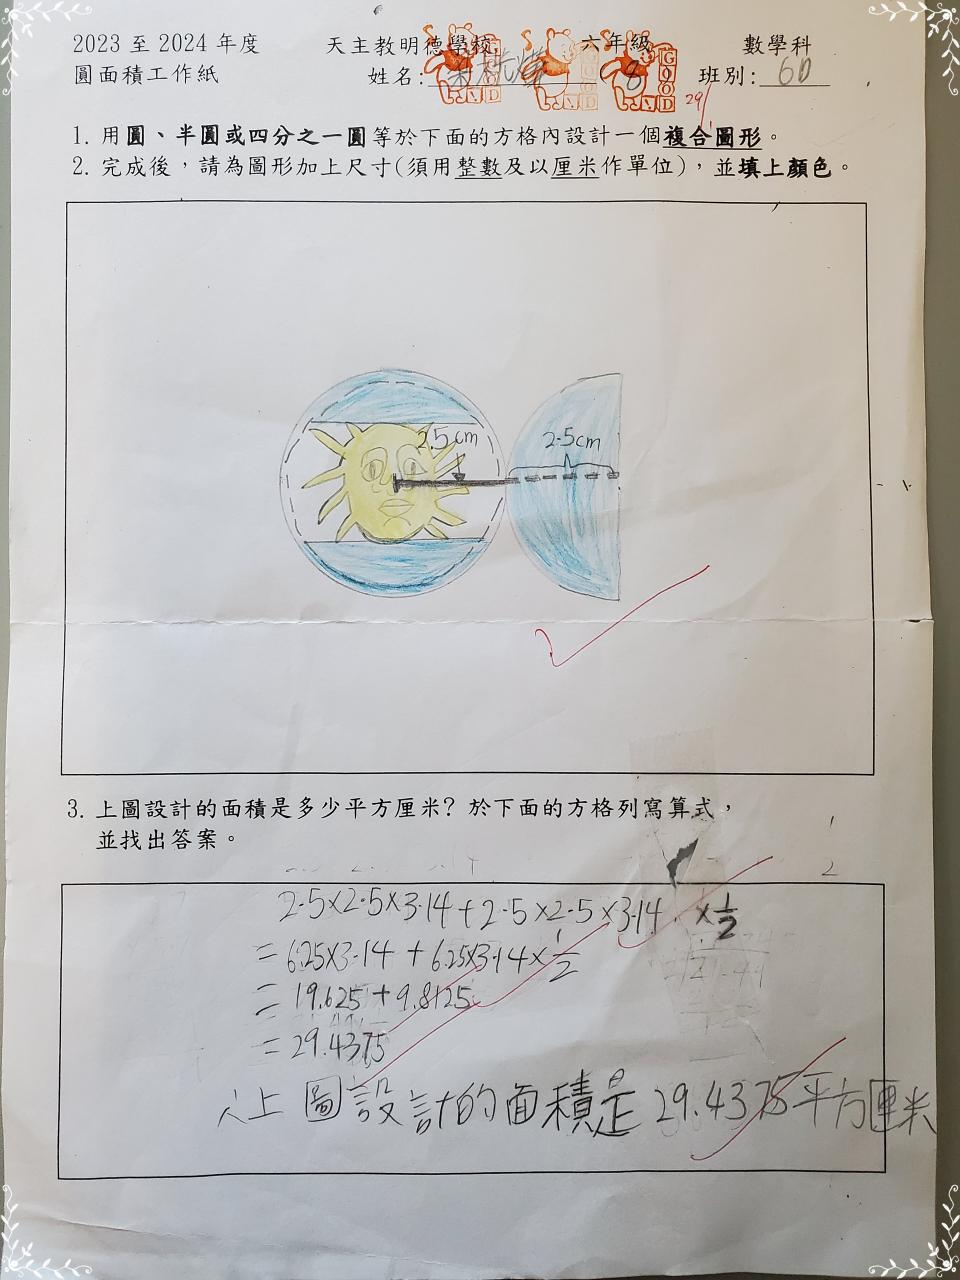 2023 至 2024 年度 天主教明德學校 六年級 數學科
圓面積工作紙 姓名: (8) 班別: 6D
29/1
1. 用圓、半圓或四分之一圓等於下面的方格內設計一個複合圖形。
2. 完成後，請為圖形加上尺寸(須用整數及以厘米作單位)，並填上顏色。
2.5cm 2.5cm
3. 上圖設計的面積是多少平方厘米? 於下面的方格列寫算式，
並找出答案。
2.5×2.5×3.14+2.5×2.5×3.14 ×1/2
= 6.25×3.14 + 6.25×3.14×1/2
= 19.625 + 9.8125
= 29.4375
上圖設計的面積是29.4375平方厘米